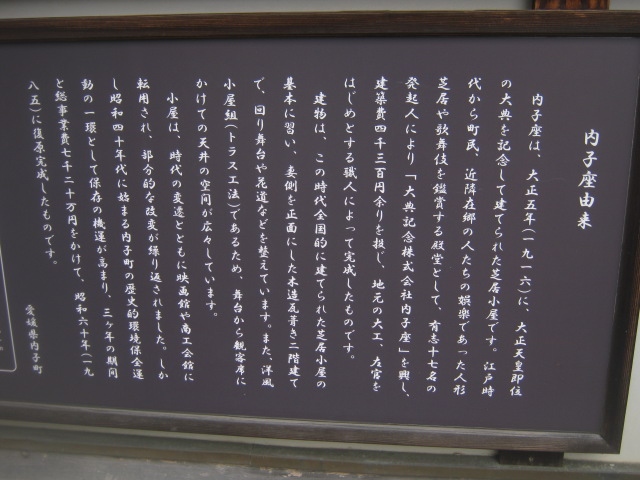 内子座由来
内子座は、大正五年(一九一六)に、大正天皇即位
の大典を記念して建てられた芝居小屋です。江戸時
代から町民、近隣在郷の人たちの娯楽であった人形
芝居や歌舞伎を鑑賞する殿堂として、有志十七名の
発起人により「大典記念株式会社内子座」を興し、
建築費四千三百円余りを投じ、地元の大工、左官を
はじめとする職人によって完成したものです。
建物は、この時代全国的に建てられた芝居小屋の
基本に習い、妻側を正面にした木造瓦葺き二階建て
で、回り舞台や花道などを整えています。また、洋風
小屋組(トラス工法)であるため、舞台から観客席に
かけての天井の空間が広々しています。
小屋は、時代の変遷とともに映画館や商工会館に
転用され、部分的な改変が繰り返されました。しか
し昭和四十年代に始まる内子町の歴史的環境保全運
動の一環として保存の機運が高まり、三ヶ年の期間
と総事業費七千二十万円をかけて、昭和六十年(一九
八五)に復原完成したものです。
愛媛県内子町